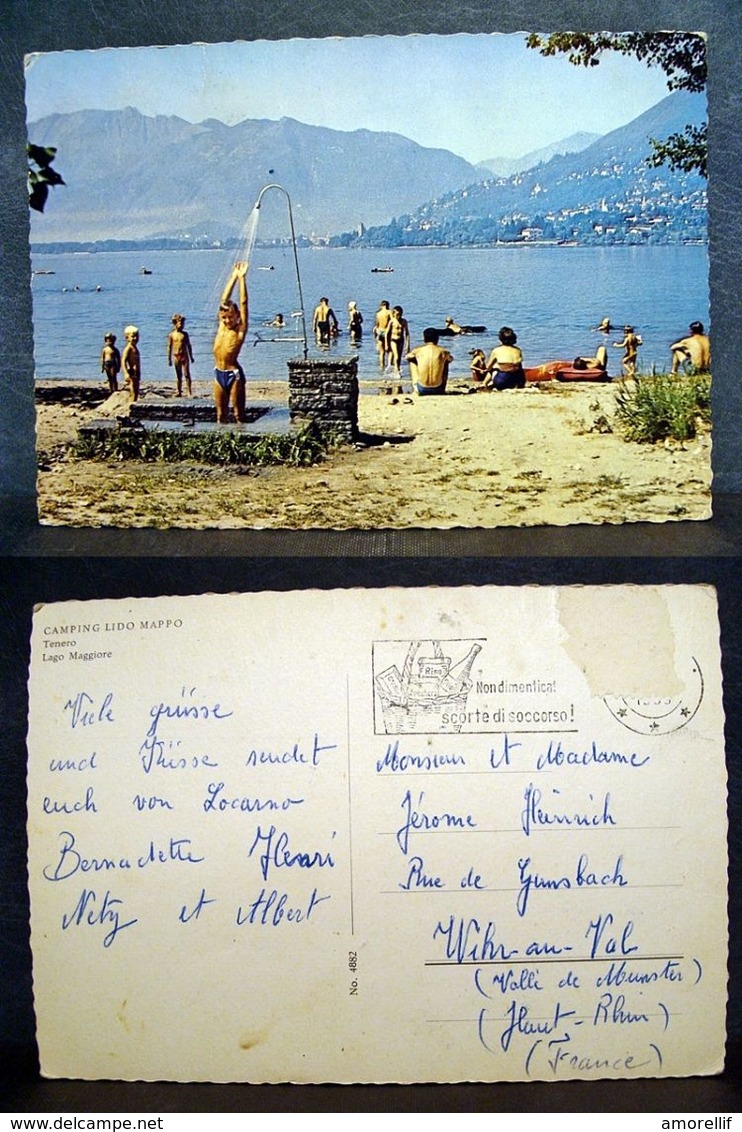 CAMPING LIDO MAPPO
Tenero
Lago Maggiore
Viele grüsse
und Küsse sendet
euch von Locarno
Bernadette Henri
Nety et Albert
No. 4882
Riso
Non dimentica!
scorte di soccorso!
Monsieur et Madame
Jérome Heinrich
Rue de Gunsbach
Wihr-au-Val
(Vallé de Munster)
(Haut-Rhin)
(France)
amorellif